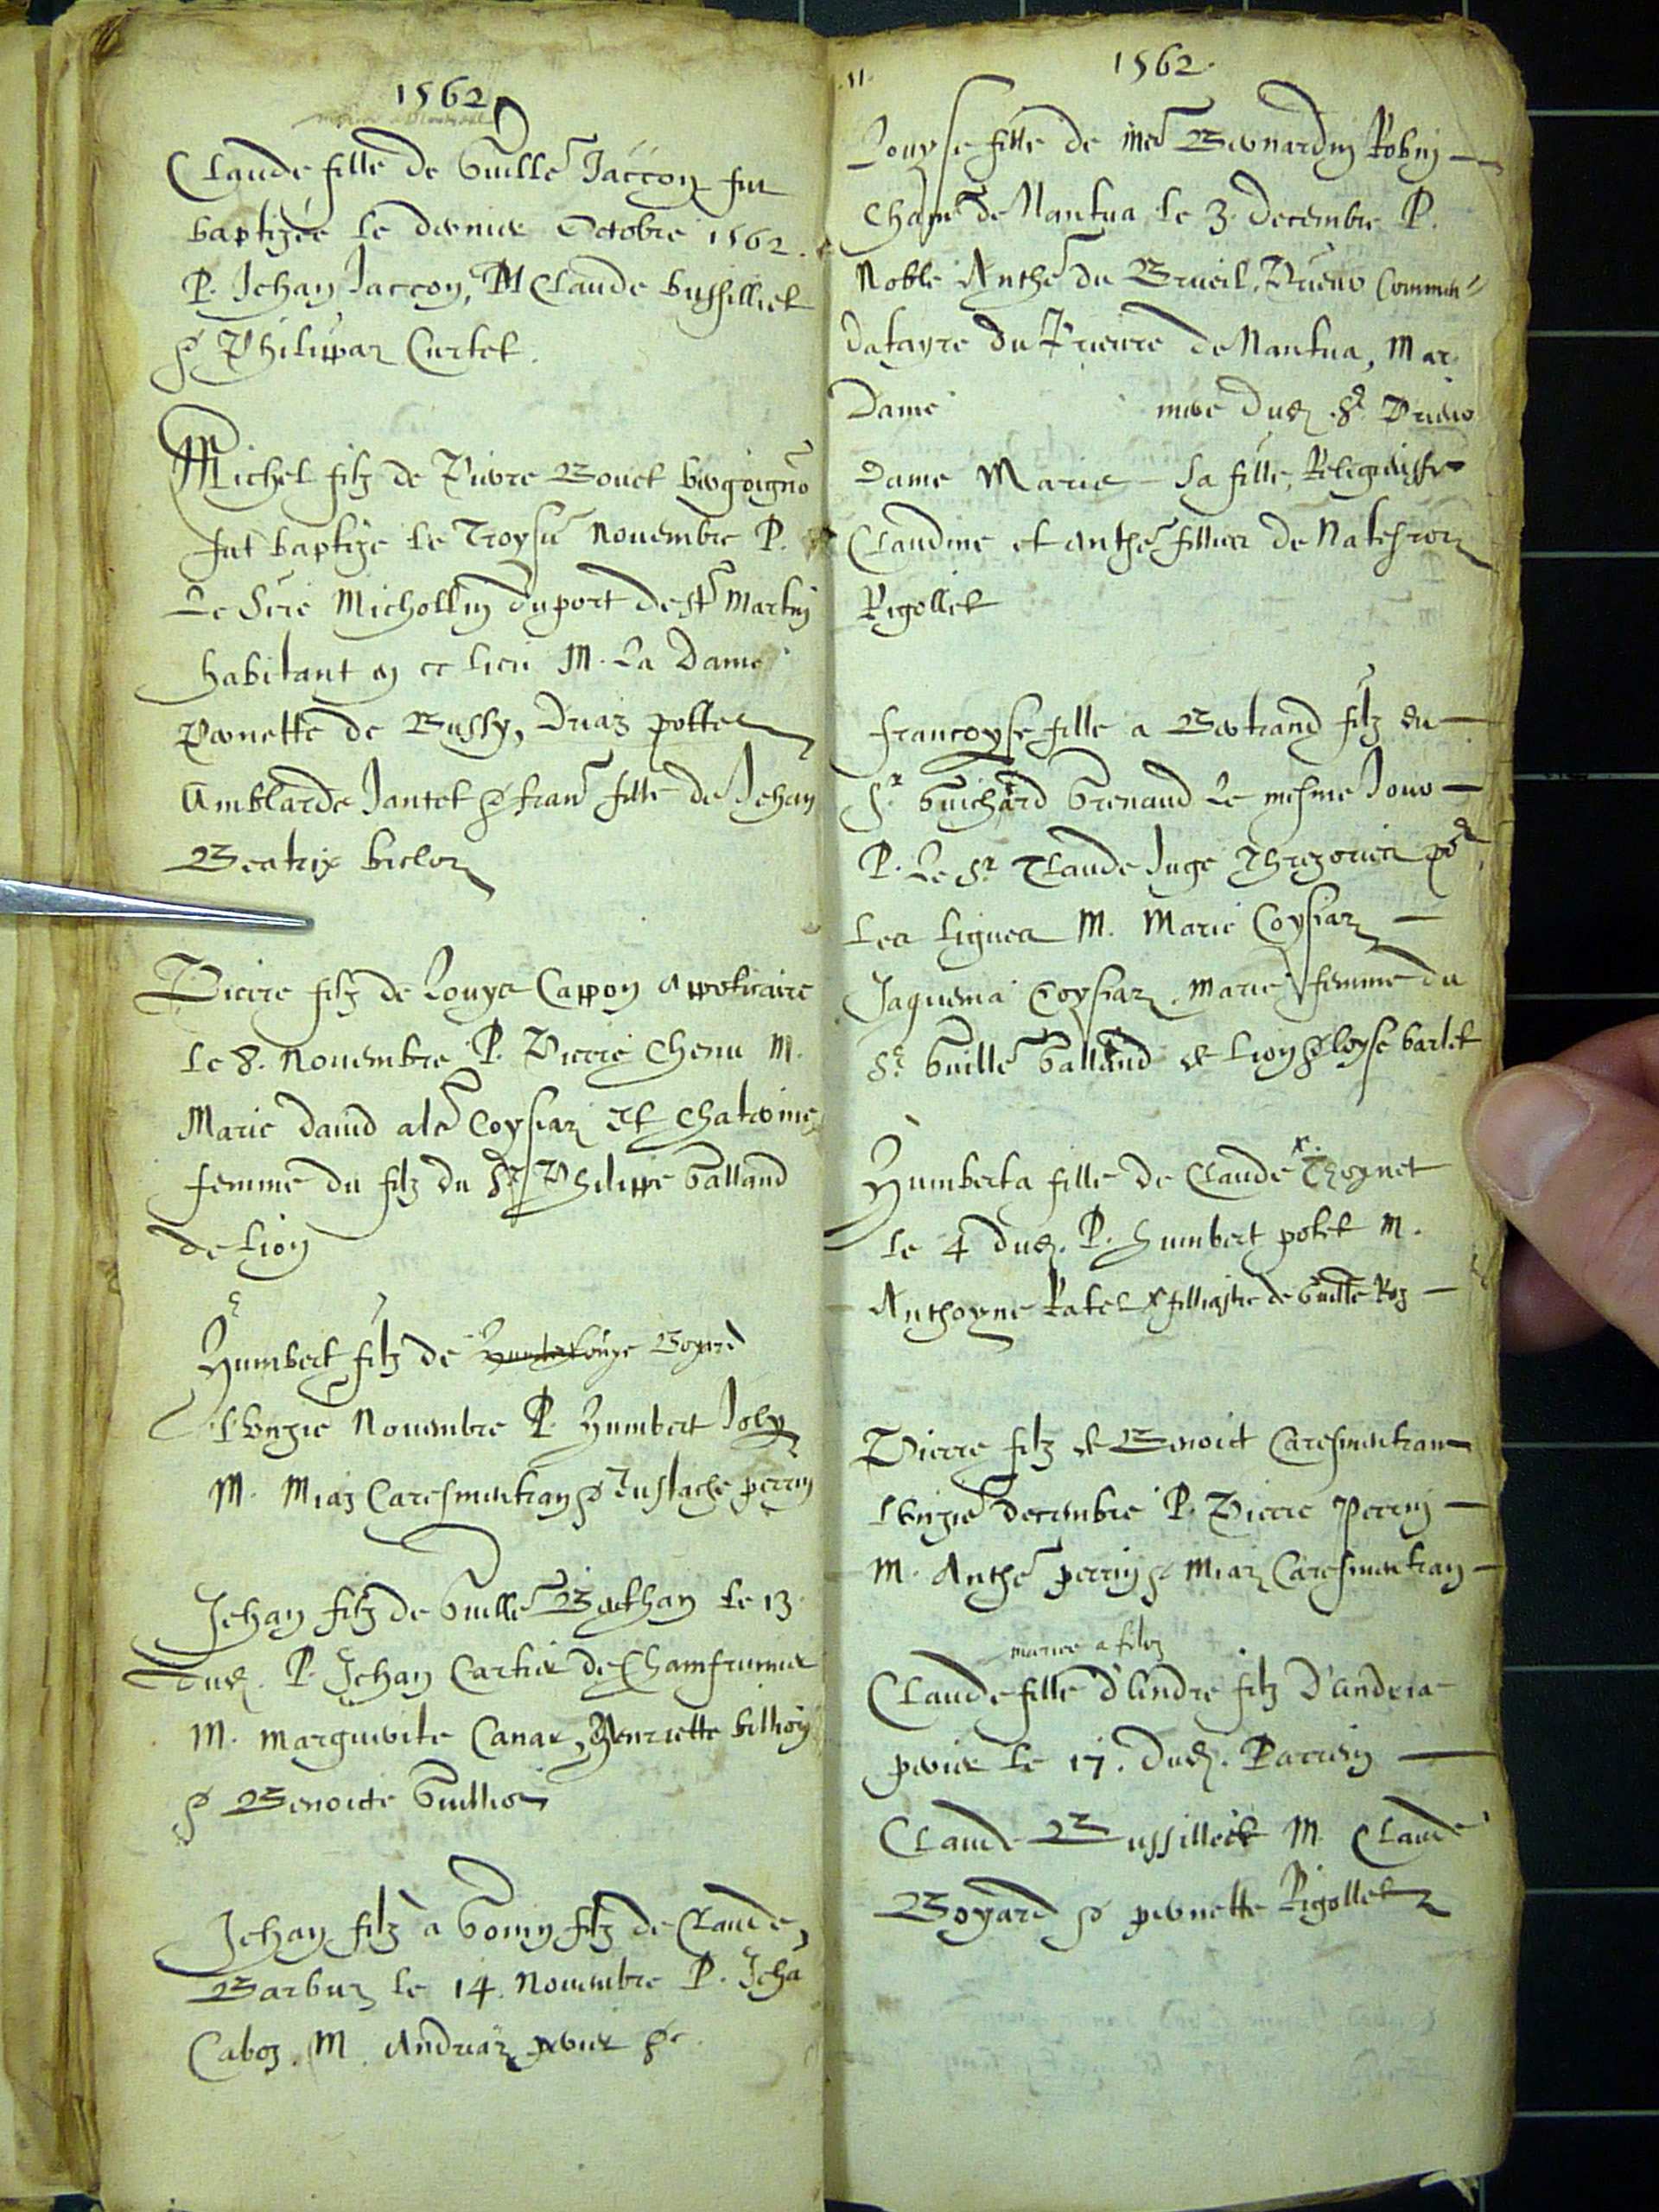 1562
Claude fille de Guille Jaccon fut
baptizée le dernier Octobre 1562.
P. Jehan Jaccon, M Claude bussilliet
& Philippaz Curtet.
Michel filz de Pierre Bouet bergoigno
fut baptize le troysie Novembre P.
Le Sire Michollin duport de st Martin
habitant en ce lieu M. La Dame
Pernette de Bussy, Duaz pottet
Amblarde Jantet & fran fille de Jehan
Beatrix bicloz
Pierre filz de Louys Cappon appoticaire
le 8. Novembre P. Pierre Chenu M.
Marie david ale Coysiaz et Chaterine
femme du filz du Sr Philippe Galland
de Lion
Humbert filz de Louys Boyard
L'unzie Novembre P. Humbert Joly
M. Miaz Caresmentran & Eustache perrin
Jehan filz de Guille Berthan le 13
dud. P. Jehan Cartier de Chamfrumier
M. marguerite Canar, Henriette billion
& Benoicte Guillios
Jehan filz a Gonin filz de Claude
Barbuz le 14. Novembre P. Jeha
Caboz. M. Andriaz perier &c.
11.
1562.
Louyse fille de me Bernardin Robin
Cha de Nantua le 3. decembre P.
Noble Anthe du Brueil, Prieur Commen
datayre du Prieure de Nantua, Mar
Dame mere dud. Sr Prieur
Dame Marie sa fille, Religieusse
Claudine et anthe filles de
Rigollet
francoyse fille a Bertrand filz du
Sr Guichard Grenaud le mesme Jour
P. Le Sr Claude Juge Threzorier po
Les Ligues M. Marie Coysiaz
Jaquema Coysiaz. Marie femme du
Sr Guille Galland de Lion & loyse barlet
Humberta fille de Claude Thoynet
le 4 dud. P. humbert potet M.
Anthoyne Ratel filliastre de Guille Roz
Pierre filz de Benoict Caresmentran
L'unzie decembre P. Pierre Perrin
M. Anthe perrin & Miaz Caresmentran
mariee a
Claude fille d'Andre filz D'andria
perier le 17. dud. Parrein
Claude Bussilliet M. Claude
Boyard & pernette Rigollet